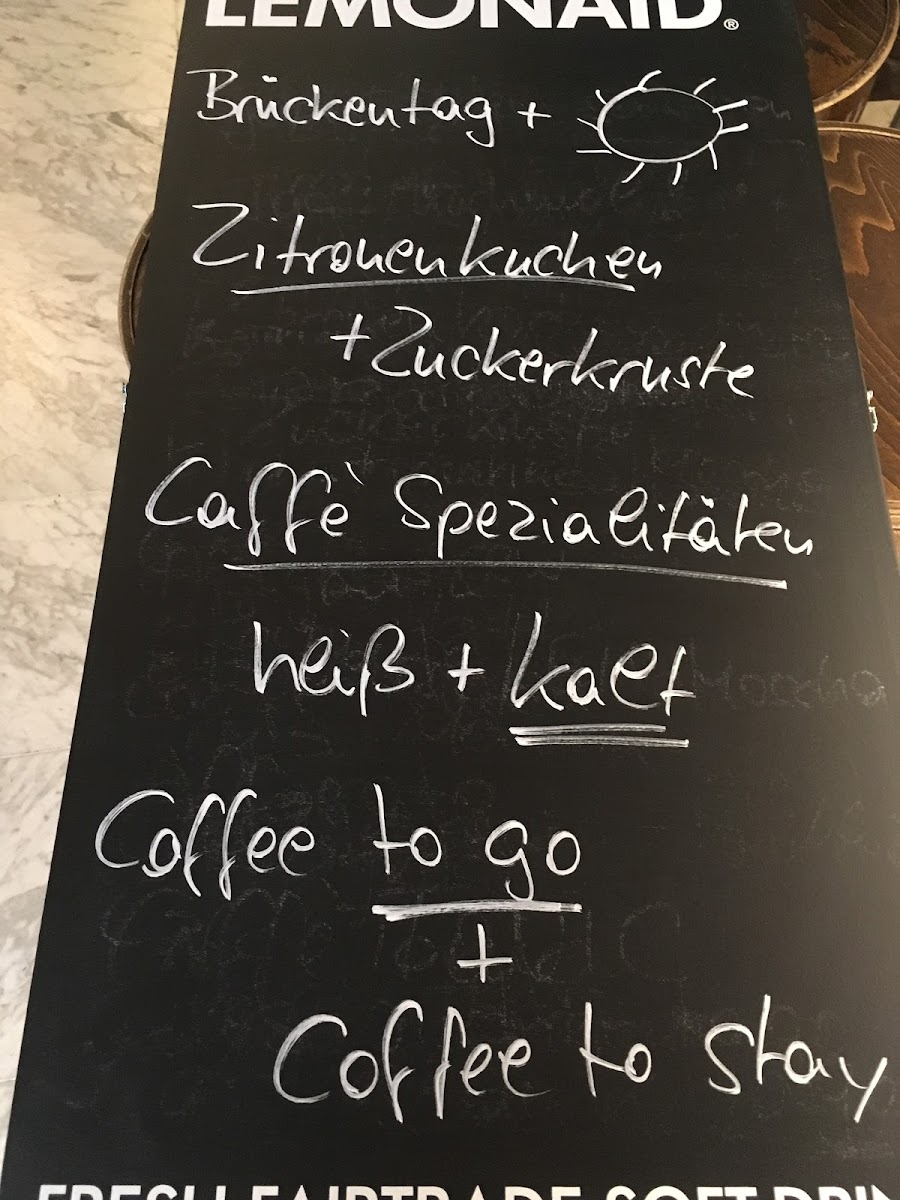 LEMONAID®
Brückentag +
Zitronenkuchen
+ Zuckerkruste
Caffè Spezialitäten
heiß + kalt
Coffee to go
+
Coffee to stay
FRESH FAIRTRADE SOFT DRIN